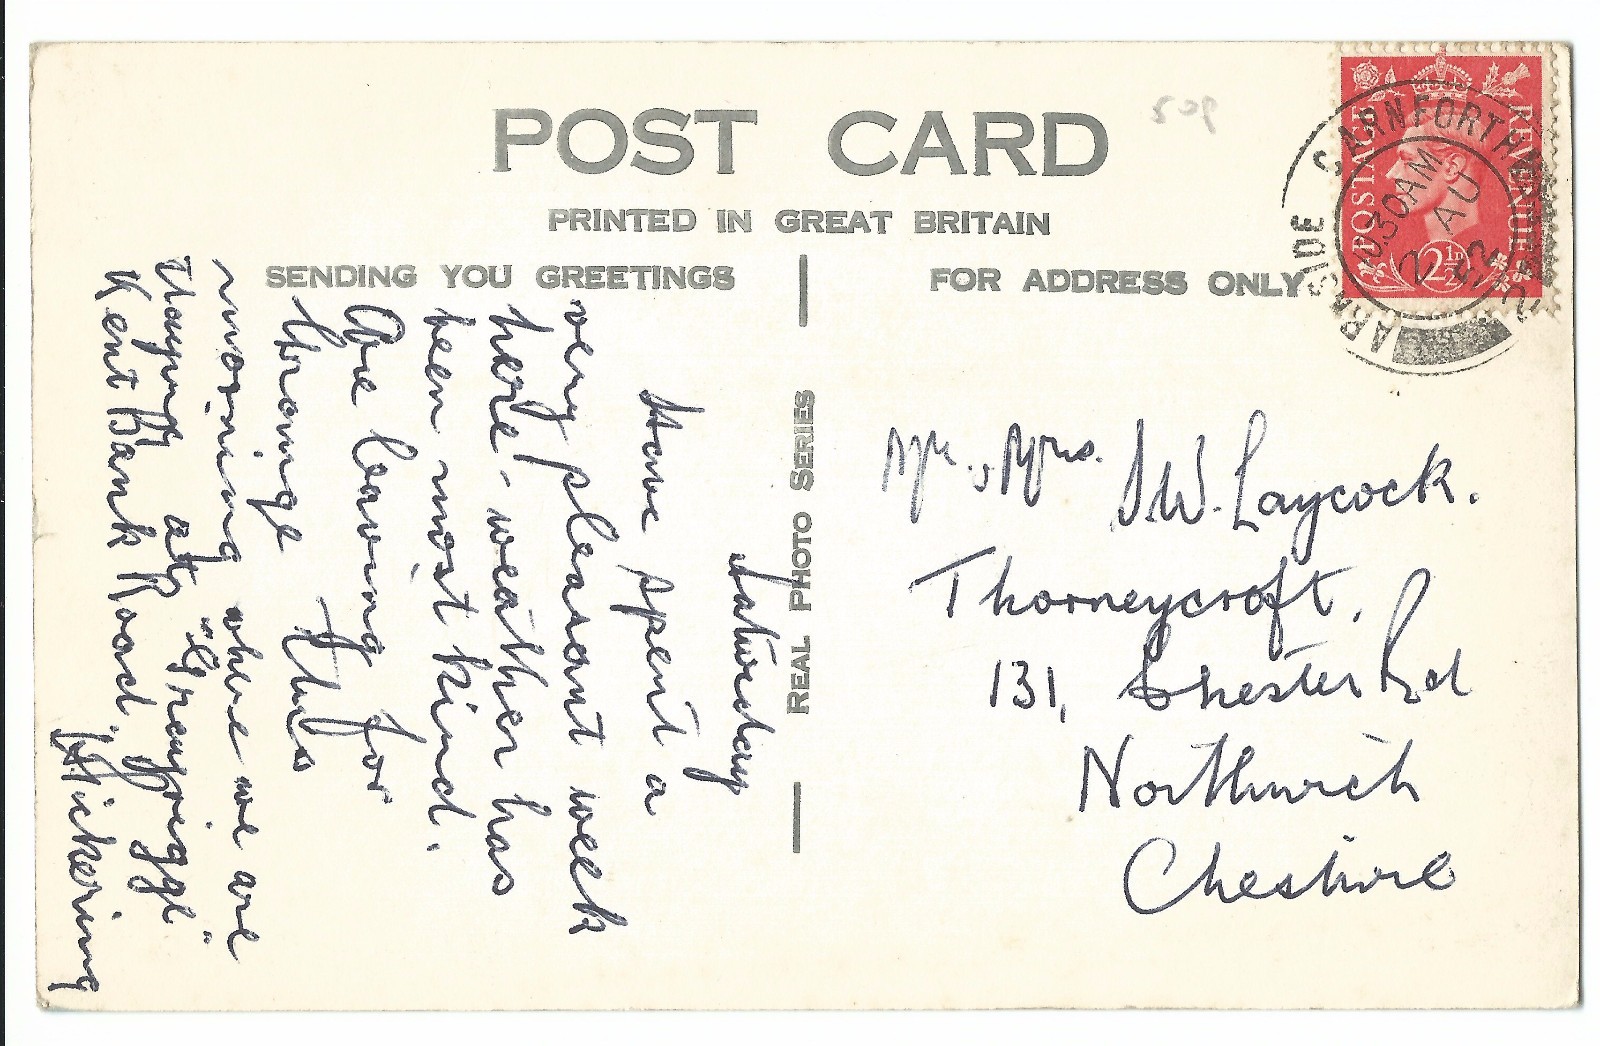 POST CARD
PRINTED IN GREAT BRITAIN
SENDING YOU GREETINGS
FOR ADDRESS ONLY
REAL PHOTO SERIES
POSTAGE REVENUE
2½D
ARNSIDE CARNFORTH LANCS
10.30AM
2 AU
52
Saturday
Have spent a
very pleasant week
here - weather has
been most kind.
Are leaving for
Grange this
morning where we are
staying at "Grayrigge"
Kent Bank Road.
Hickering
Mr. & Mrs. J W. Laycock.
Thorneycroft,
131, Chester Rd
Northwich
Cheshire